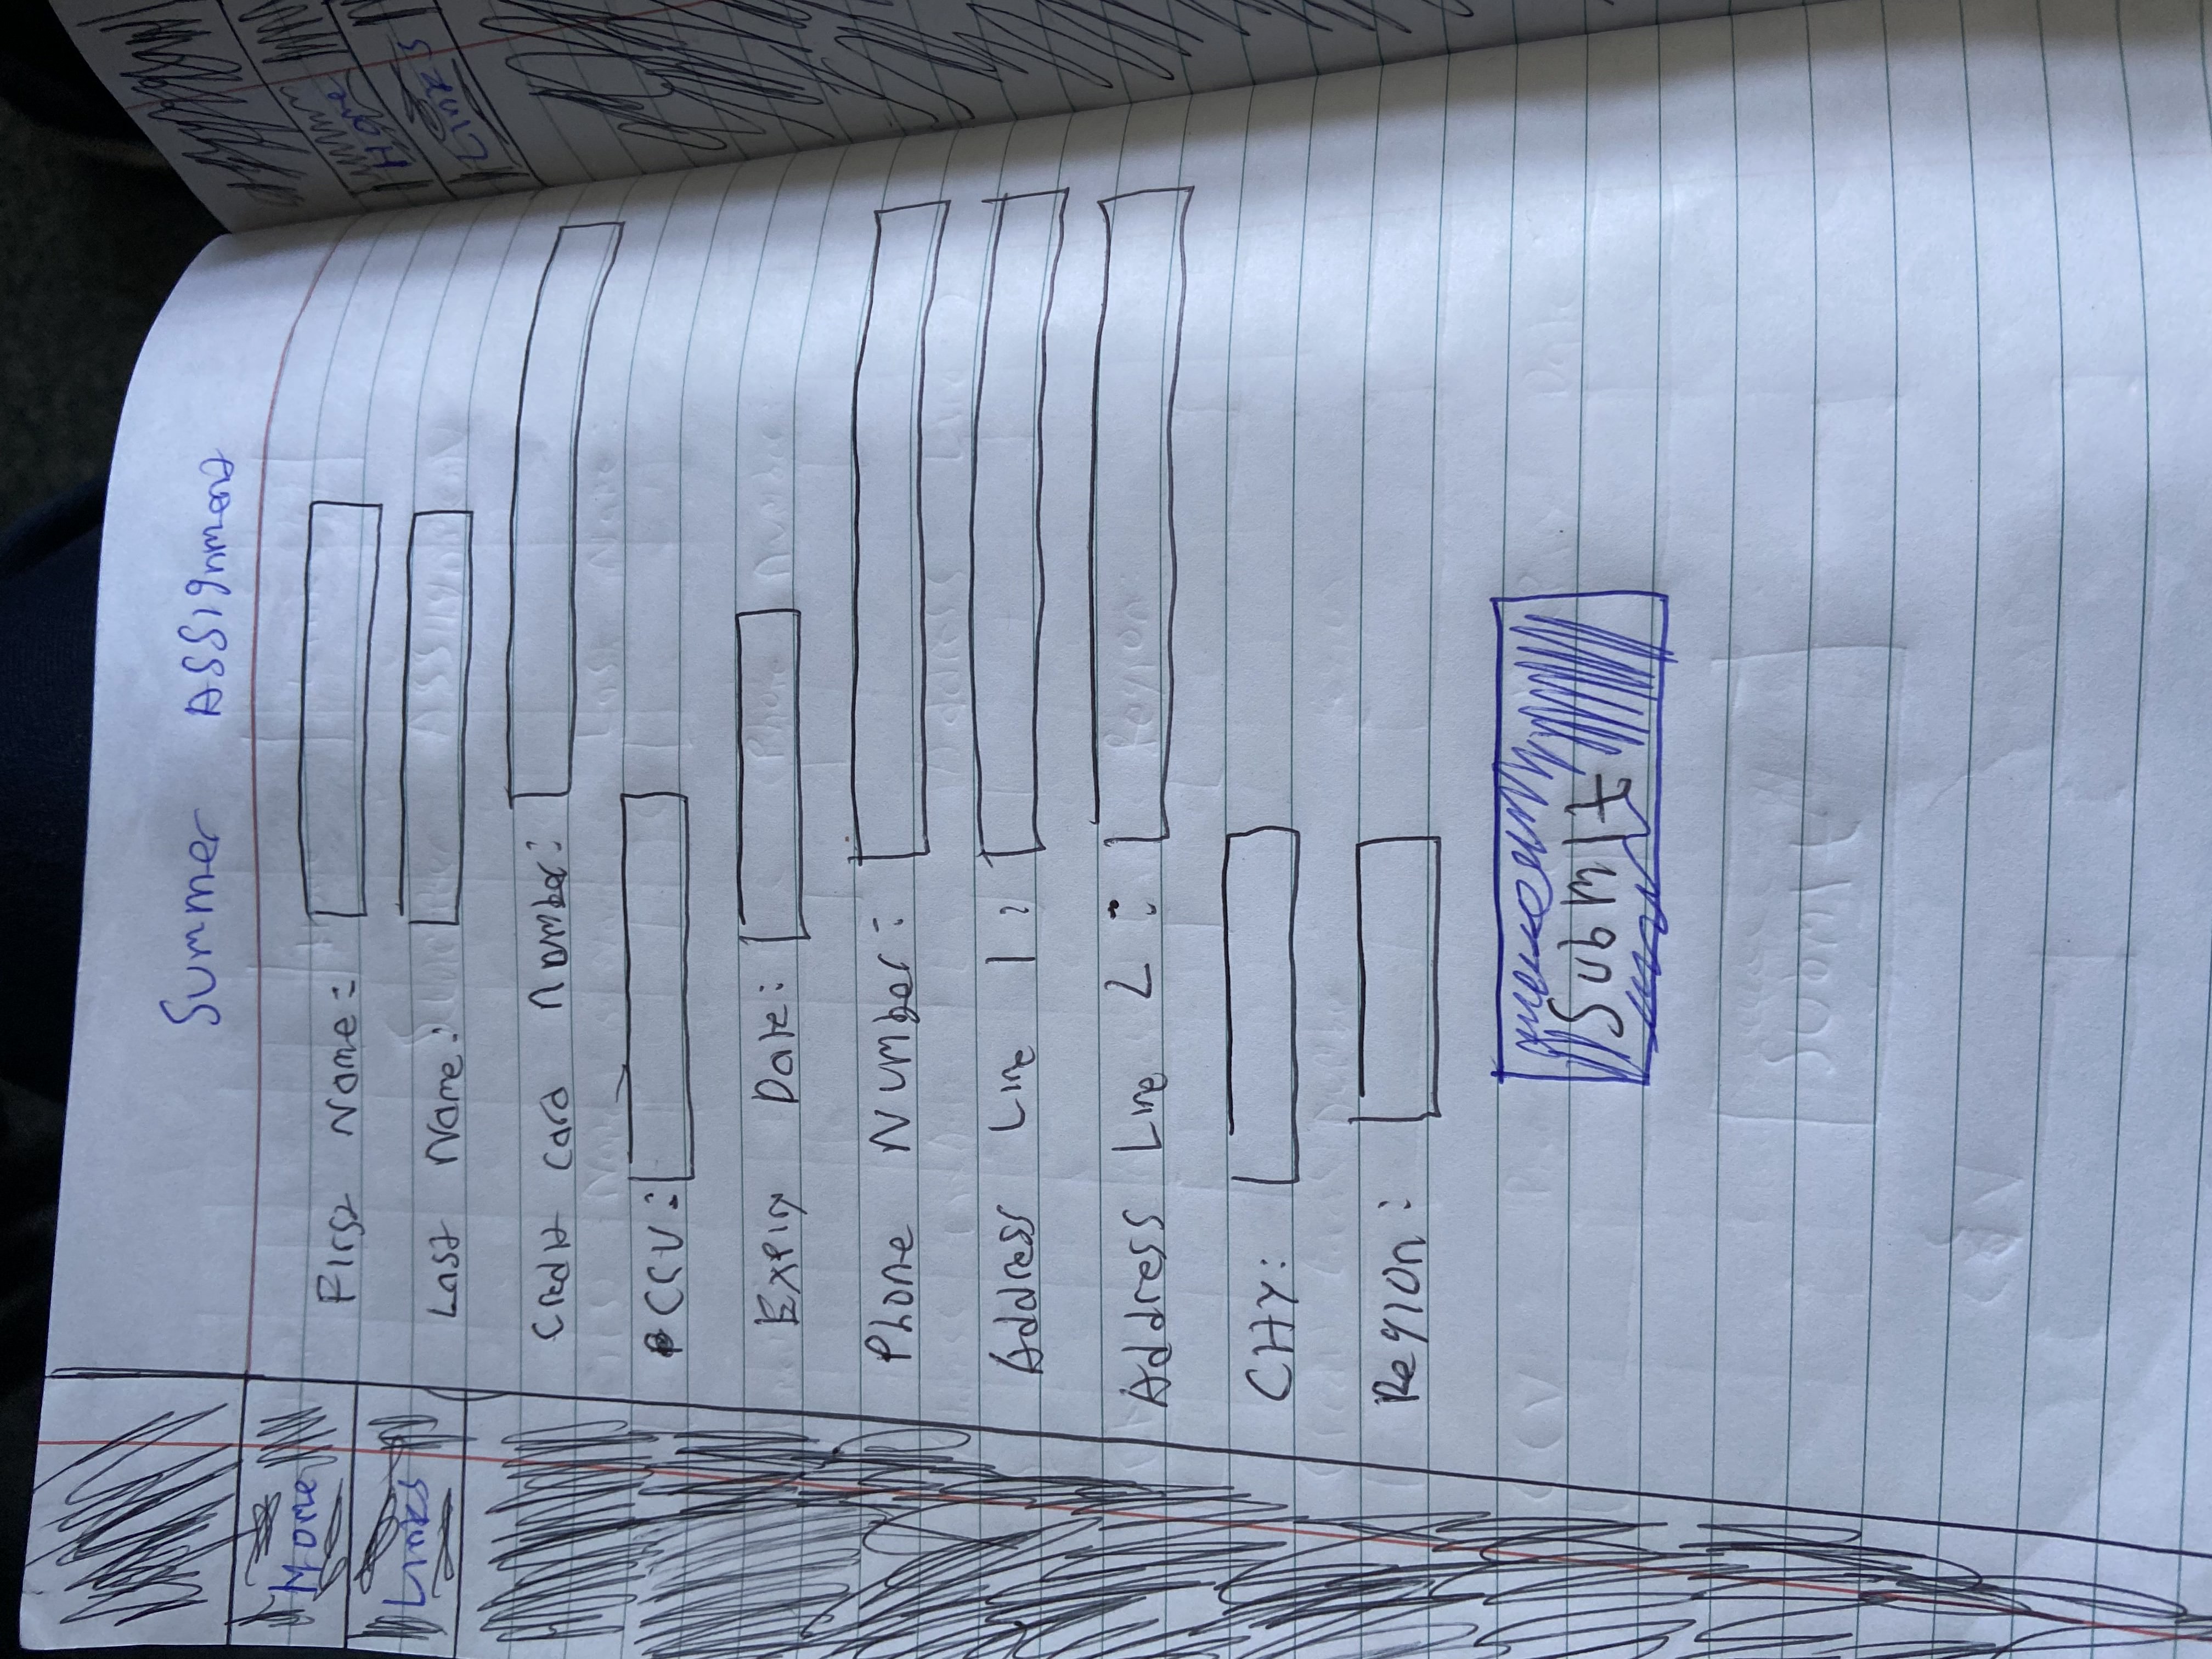 Summer Assignment
Home
Links
First Name:
Last Name:
Credit Card Number:
CCV:
Expiry Date:
Phone Number:
Address Line 1:
Address Line 2:
City:
Region:
Submit
Home
Links